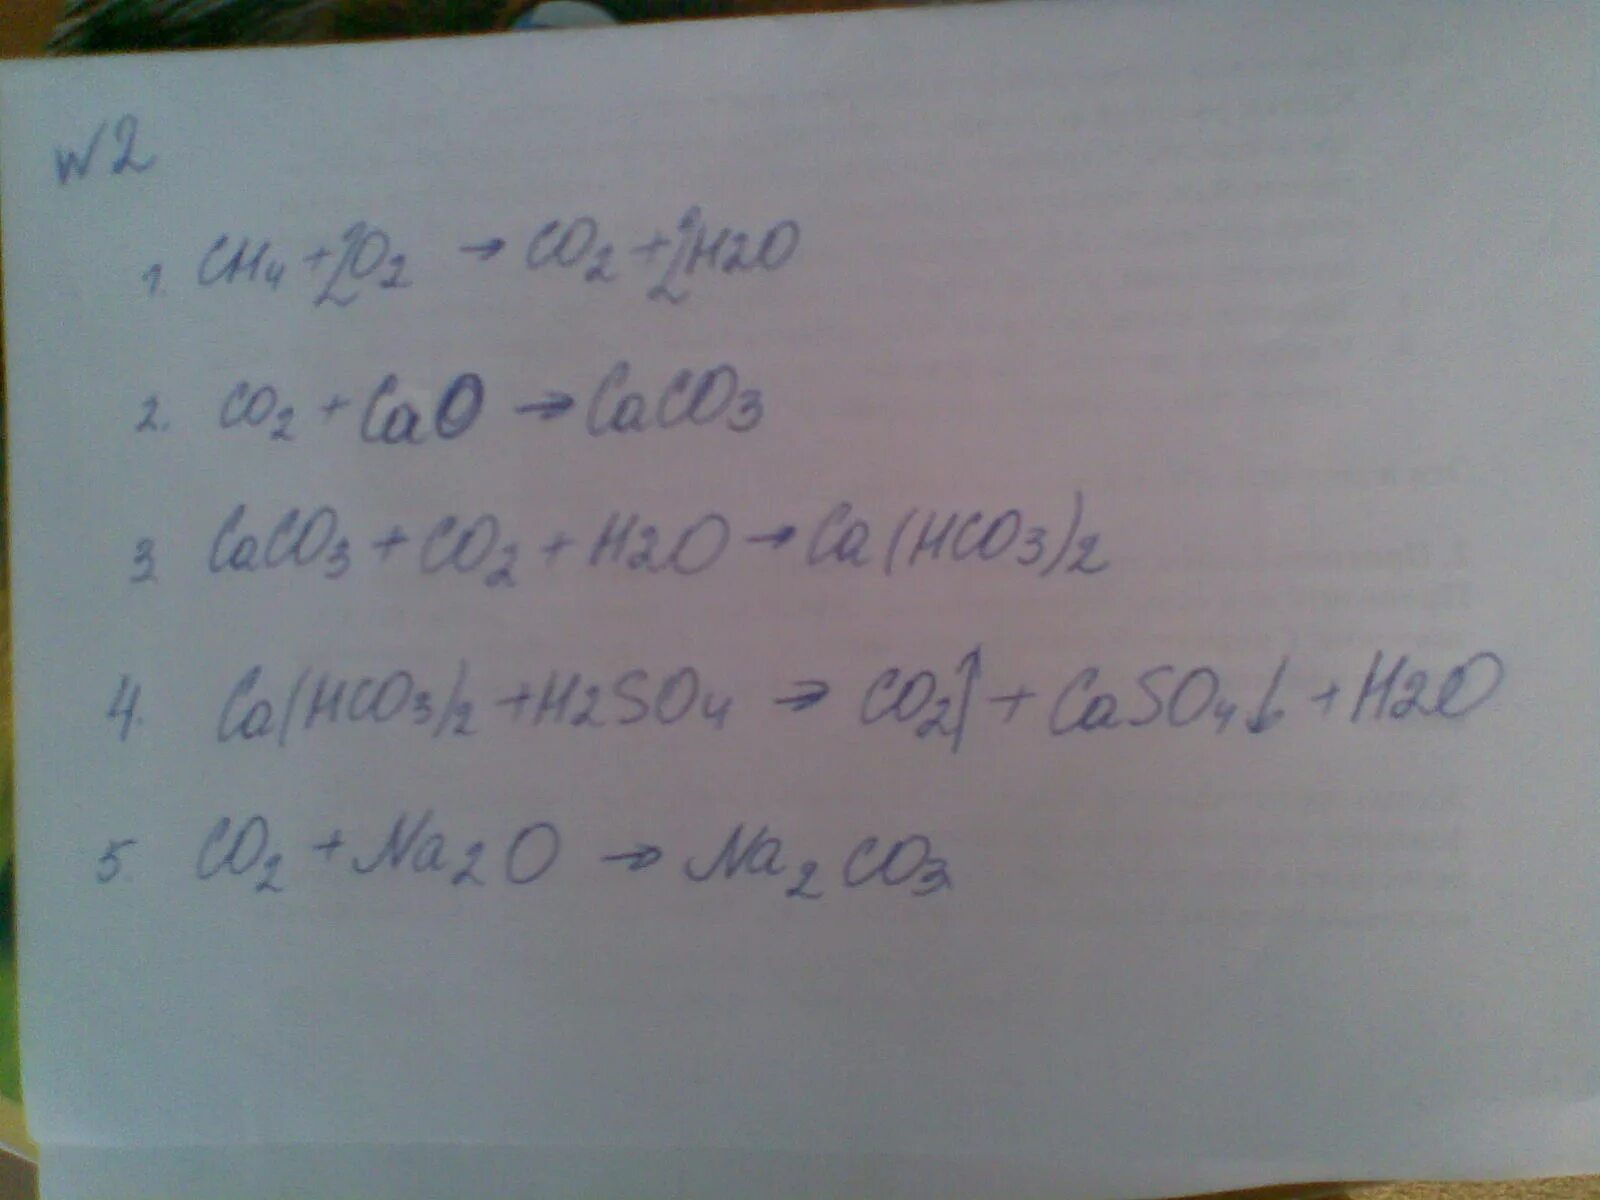 №2
1. CH4 + 2O2 → CO2 + 2H2O
2. CO2 + CaO → CaCO3
3. CaCO3 + CO2 + H2O → Ca(HCO3)2
4. Ca(HCO3)2 + H2SO4 → CO2↑ + CaSO4↓ + H2O
5. CO2 + Na2O → Na2CO3